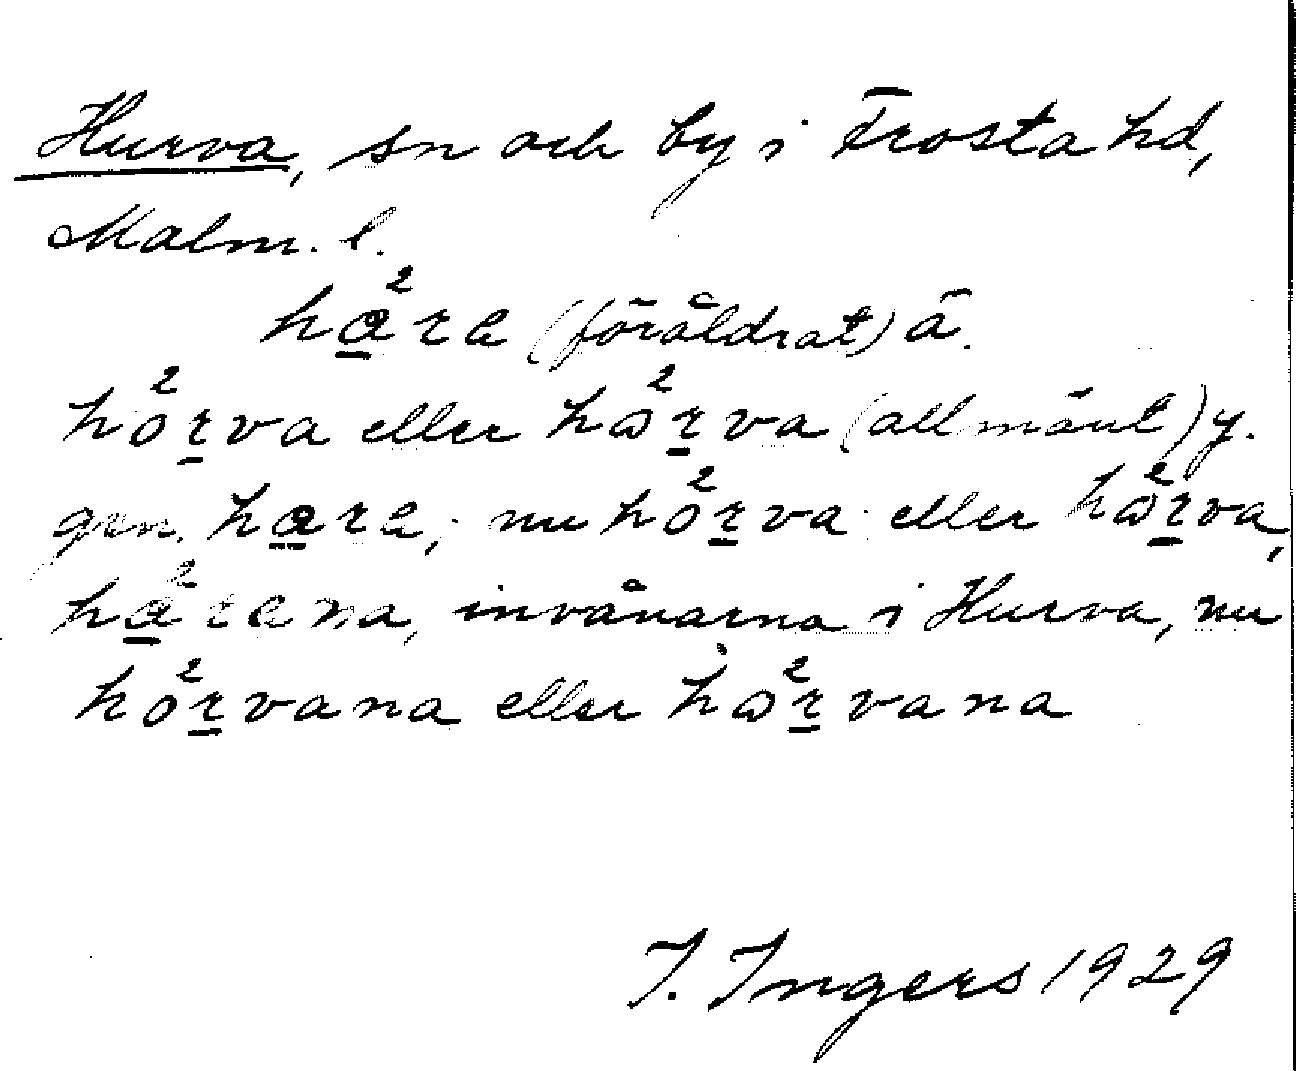 Hurva, sn och by i Frosta hd,
Malm. l.
ha̱²re (föråldrat) ä.
hor̲²va eller hɷr̲²va (allmänt) y.
gen. ha̱re; nu hor̲²va eller hɷr̲²va,
ha̱²rena, invånarna i Hurva, nu
hor̲²vana eller hɷr̲²vana
I. Ingers 1929